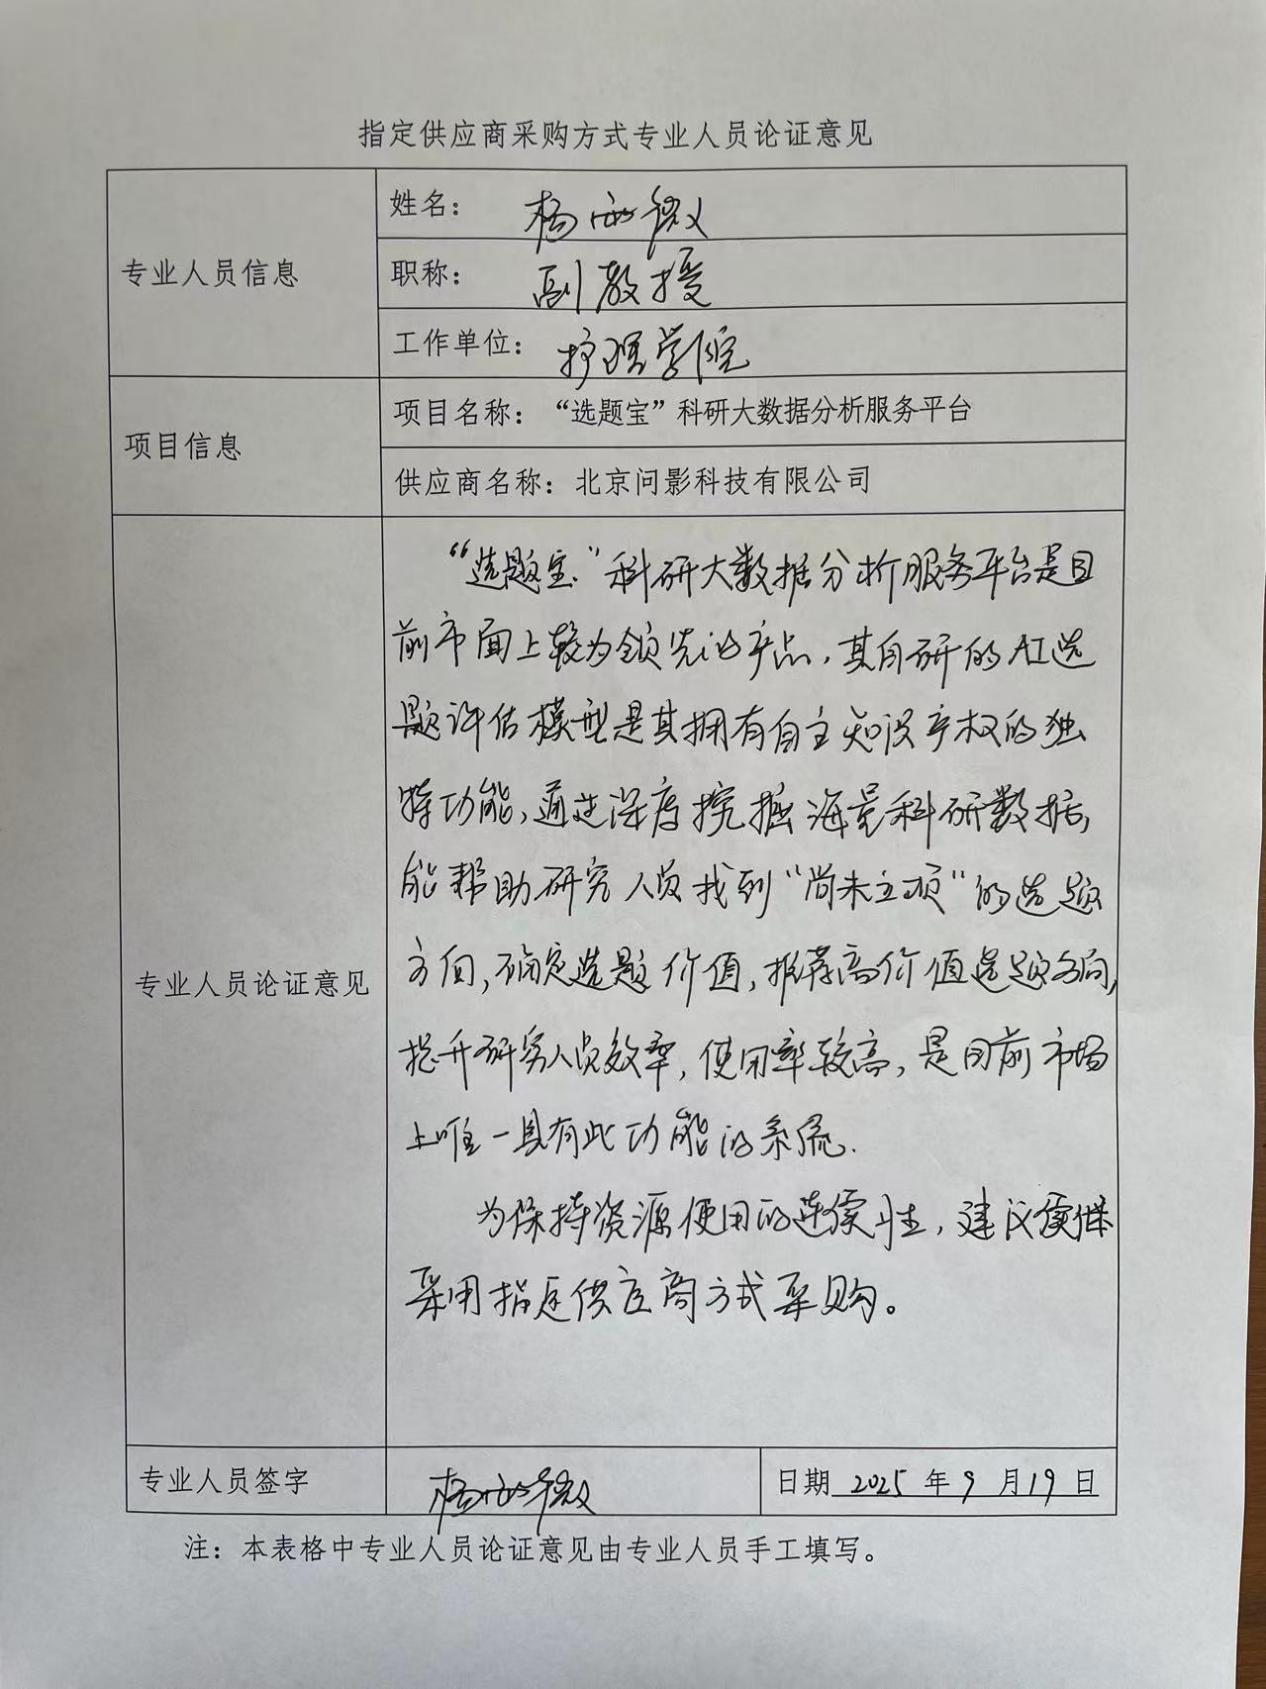 指定供应商采购方式专业人员论证意见
专业人员信息
姓名： 杨 微
职称： 副教授
工作单位： 护理学院
项目信息
项目名称：“选题宝”科研大数据分析服务平台
供应商名称：北京问影科技有限公司
专业人员论证意见
“选题宝”科研大数据分析服务平台是目
前市面上较为领先的产品，其自研的AI选
题评估模型是其拥有自主知识产权的独
特功能，通过深度挖掘海量科研数据，
能帮助研究人员找到“尚未立项”的选题
方向，确定选题价值，推荐高价值选题方向，
提升研究人员效率，使用率较高，是目前市场
上唯一具有此功能的系统.
为保持资源使用的连续性，建议继续
采用指定供应商方式采购。
专业人员签字
杨 微
日期 2025 年 9 月 19 日
注：本表格中专业人员论证意见由专业人员手工填写。